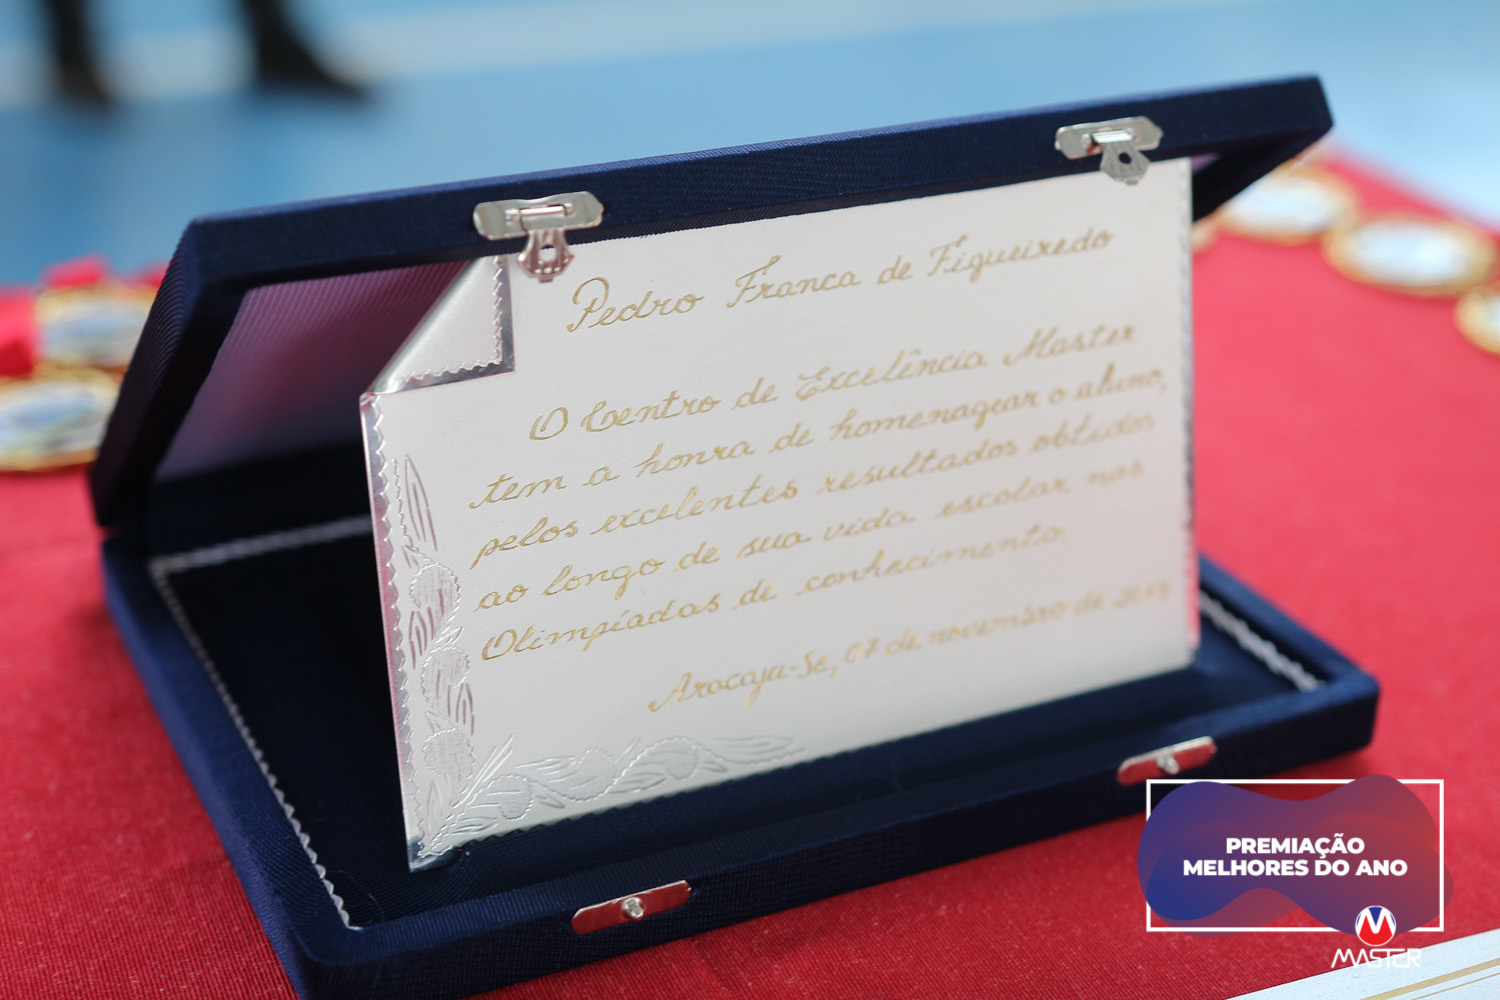 Pedro Franca de Figueiredo
O Centro de Excelência Master
tem a honra de homenagear o aluno,
pelos excelentes resultados obtidos
ao longo de sua vida escolar nas
Olimpíadas de conhecimento.
Aracaju-Se, 07 de novembro de
PREMIAÇÃO
MELHORES DO ANO
MASTER